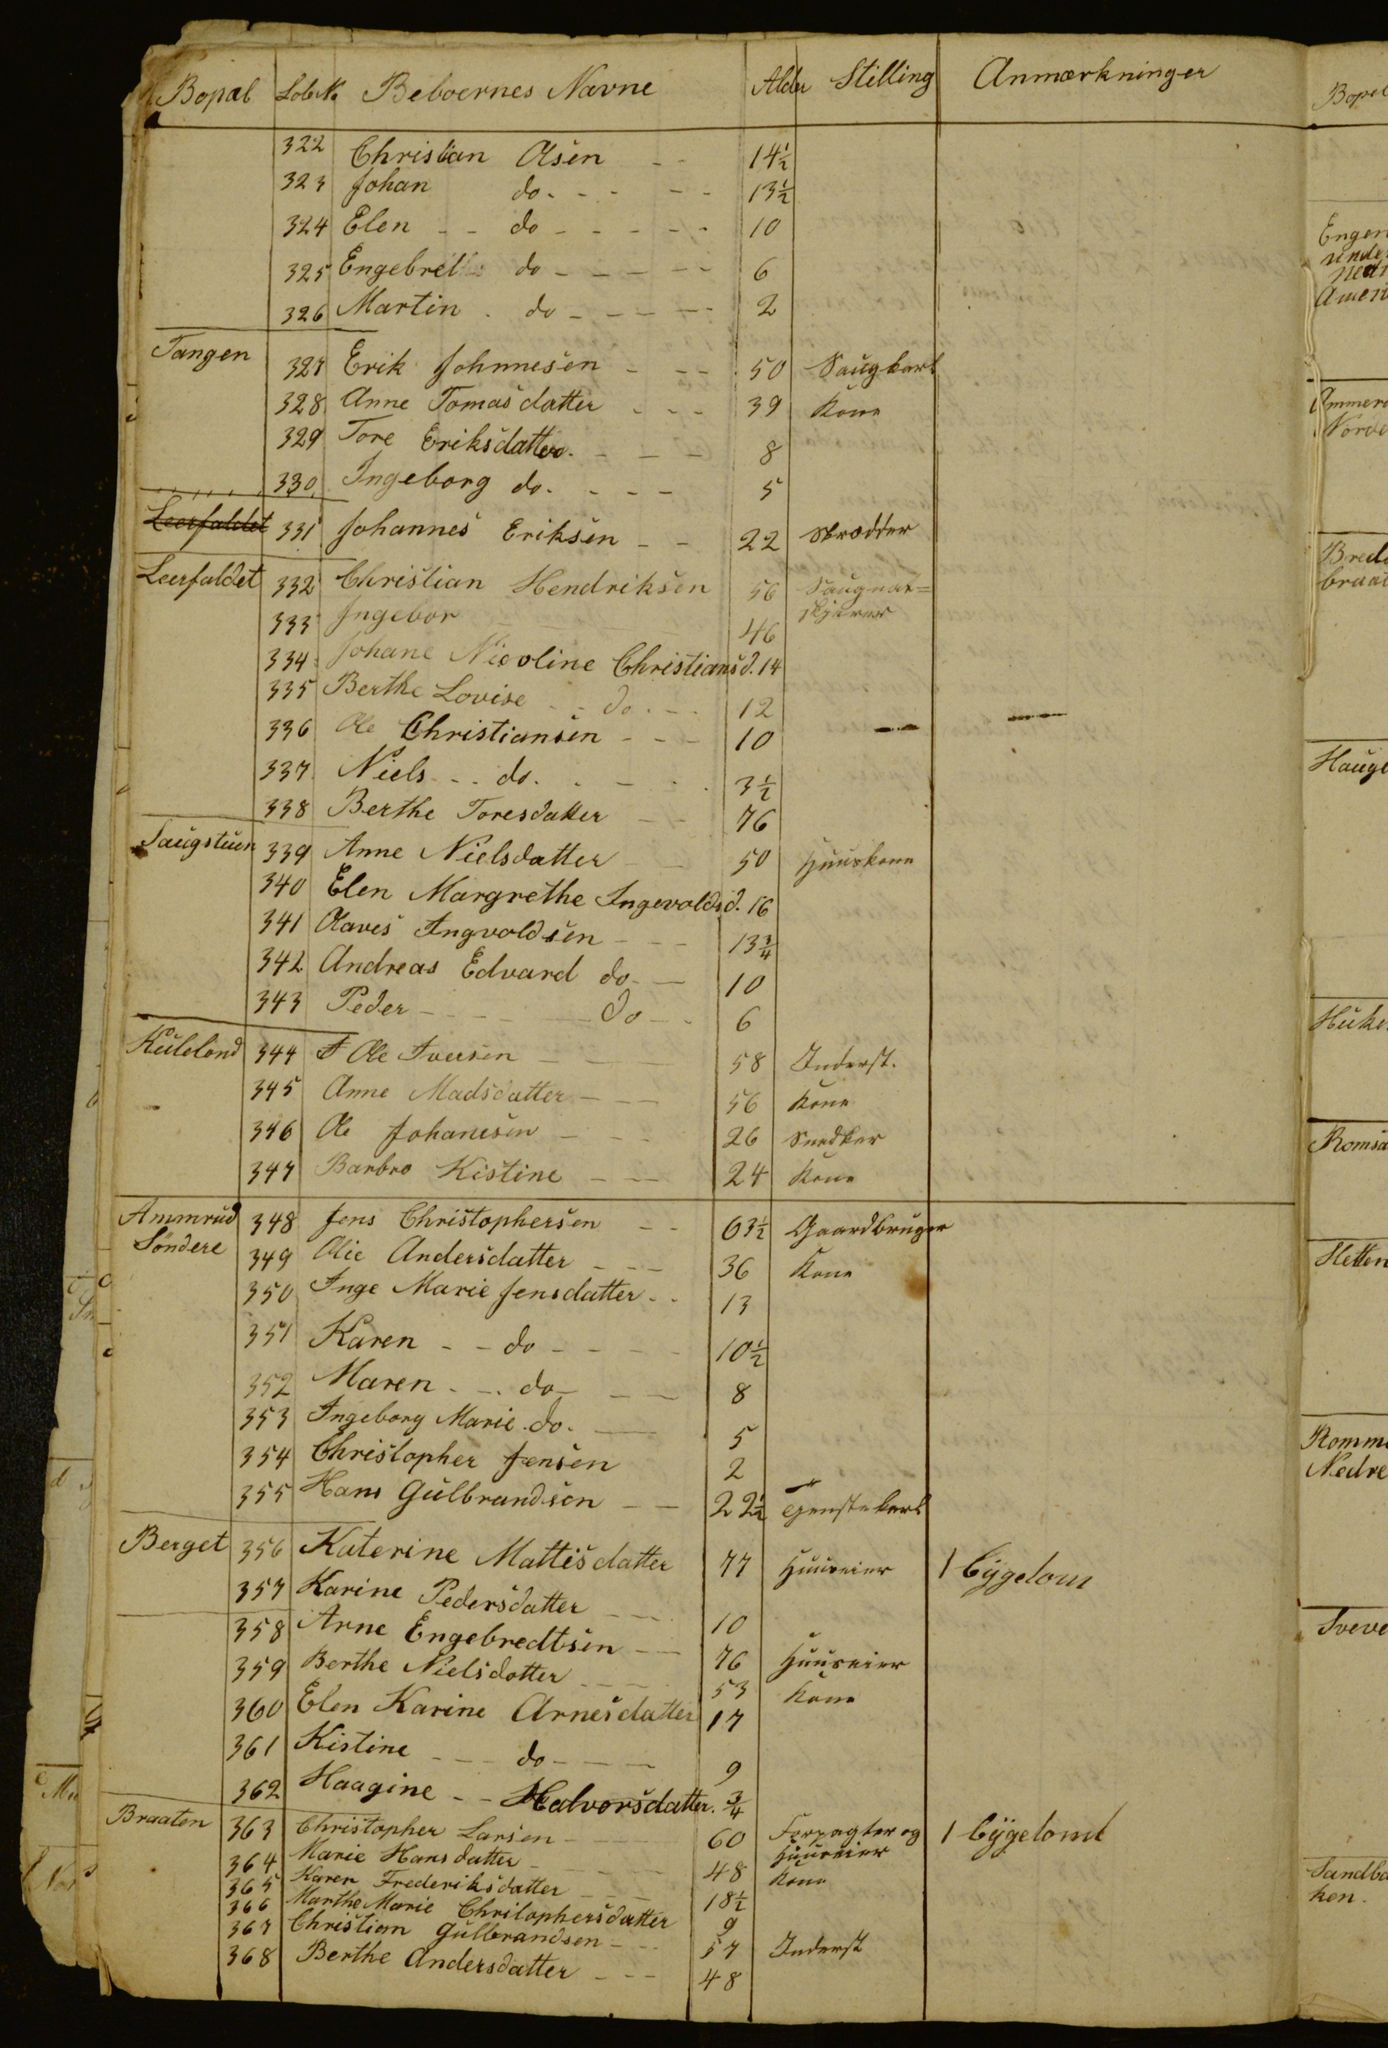 Bopæl Løb. No Beboernes Navne Alder Stilling Anmærkninger
322 Christian Olsen - - 14½
323 Johan do - - - - 13½
324 Elen - - do - - - - - 10
325 Engebret do - - - - - 6
326 Martin - do - - - - - 2
Tangen 327 Erik Johnnesen - - - 50 Saugkarl
328 Anne Tomasdatter - - - 39 Kone
329 Tore Eriksdatter - - - - 8
330 Ingeborg do - - - - 5
Leerfaldet 331 Johannes Eriksen - - 22 Skrædder
Leerfaldet 332 Christian Hendriksen 56 Saugnat=
skjærer
333 Ingebor 46
334 Johane Nicoline Christiansd. 14
335 Berthe Lovise - - do - - 12
336 Ole Christiansen - - - 10
337 Niels - - do - - - 3½
338 Berthe Toresdatter - - 76
Saugstuen 339 Anne Nielsdatter - - 50 Huuskone
340 Elen Margrethe Ingevoldsd. 16
341 Olaves Ingvoldsen - - - 13¾
342 Andreas Edvard do - - 10
343 Peder - - - - do - - 6
344 Ole Iversen - - - 58 Inderst.
345 Anne Madsdatter - - - 56 Kone
346 Ole Johanesen - - - 26 Snedker
347 Barbro Kistine - - - 24 Kone
Ammrud 348 Jens Christophersen - - 63½ Gaardbruger
Søndere
349 Olie Andersdatter - - - 36 Kone
350 Inge Marie Jensdatter - - 13
351 Karen - - do - - - - 10½
352 Maren - - do - - - 8
353 Ingeborg Marie do - - 5
354 Christopher Jensen 2
355 Hans Gulbrandsen - - 22½ Tjenstekarl
Berget 356 Katerine Mattisdatter 77 Huuseier 1 Bygelom
357 Karine Pedersdatter - - - 10
358 Arne Engebredtsen - - 76 Huuseier
359 Berthe Nielsdotter - - - 53 Kone
360 Elen Karine Arnesdatter 17
361 Kistine - - - do - - - 9
362 Haagine - - Halvorsdatter. ¾
Braaten 363 Christopher Larsen - - - 60 Forpagter og 1 Bygelomt
Huuseier
364 Marie Hansdatter - - - 48 Kone
365 Karen Frederiksdatter - - - 18½
366 Marthe Marie Chritophersdatter 9
367 Christian Gulbrandsen - - - 57 Inderst
368 Berthe Andersdatter - - - 48
Bopæl
Engen
unde
Amen
Ammer
Norde
Brede
braat
Hauge
Romsa
Sletten
Romme
Nedre
Sveve
Sandba
ken.